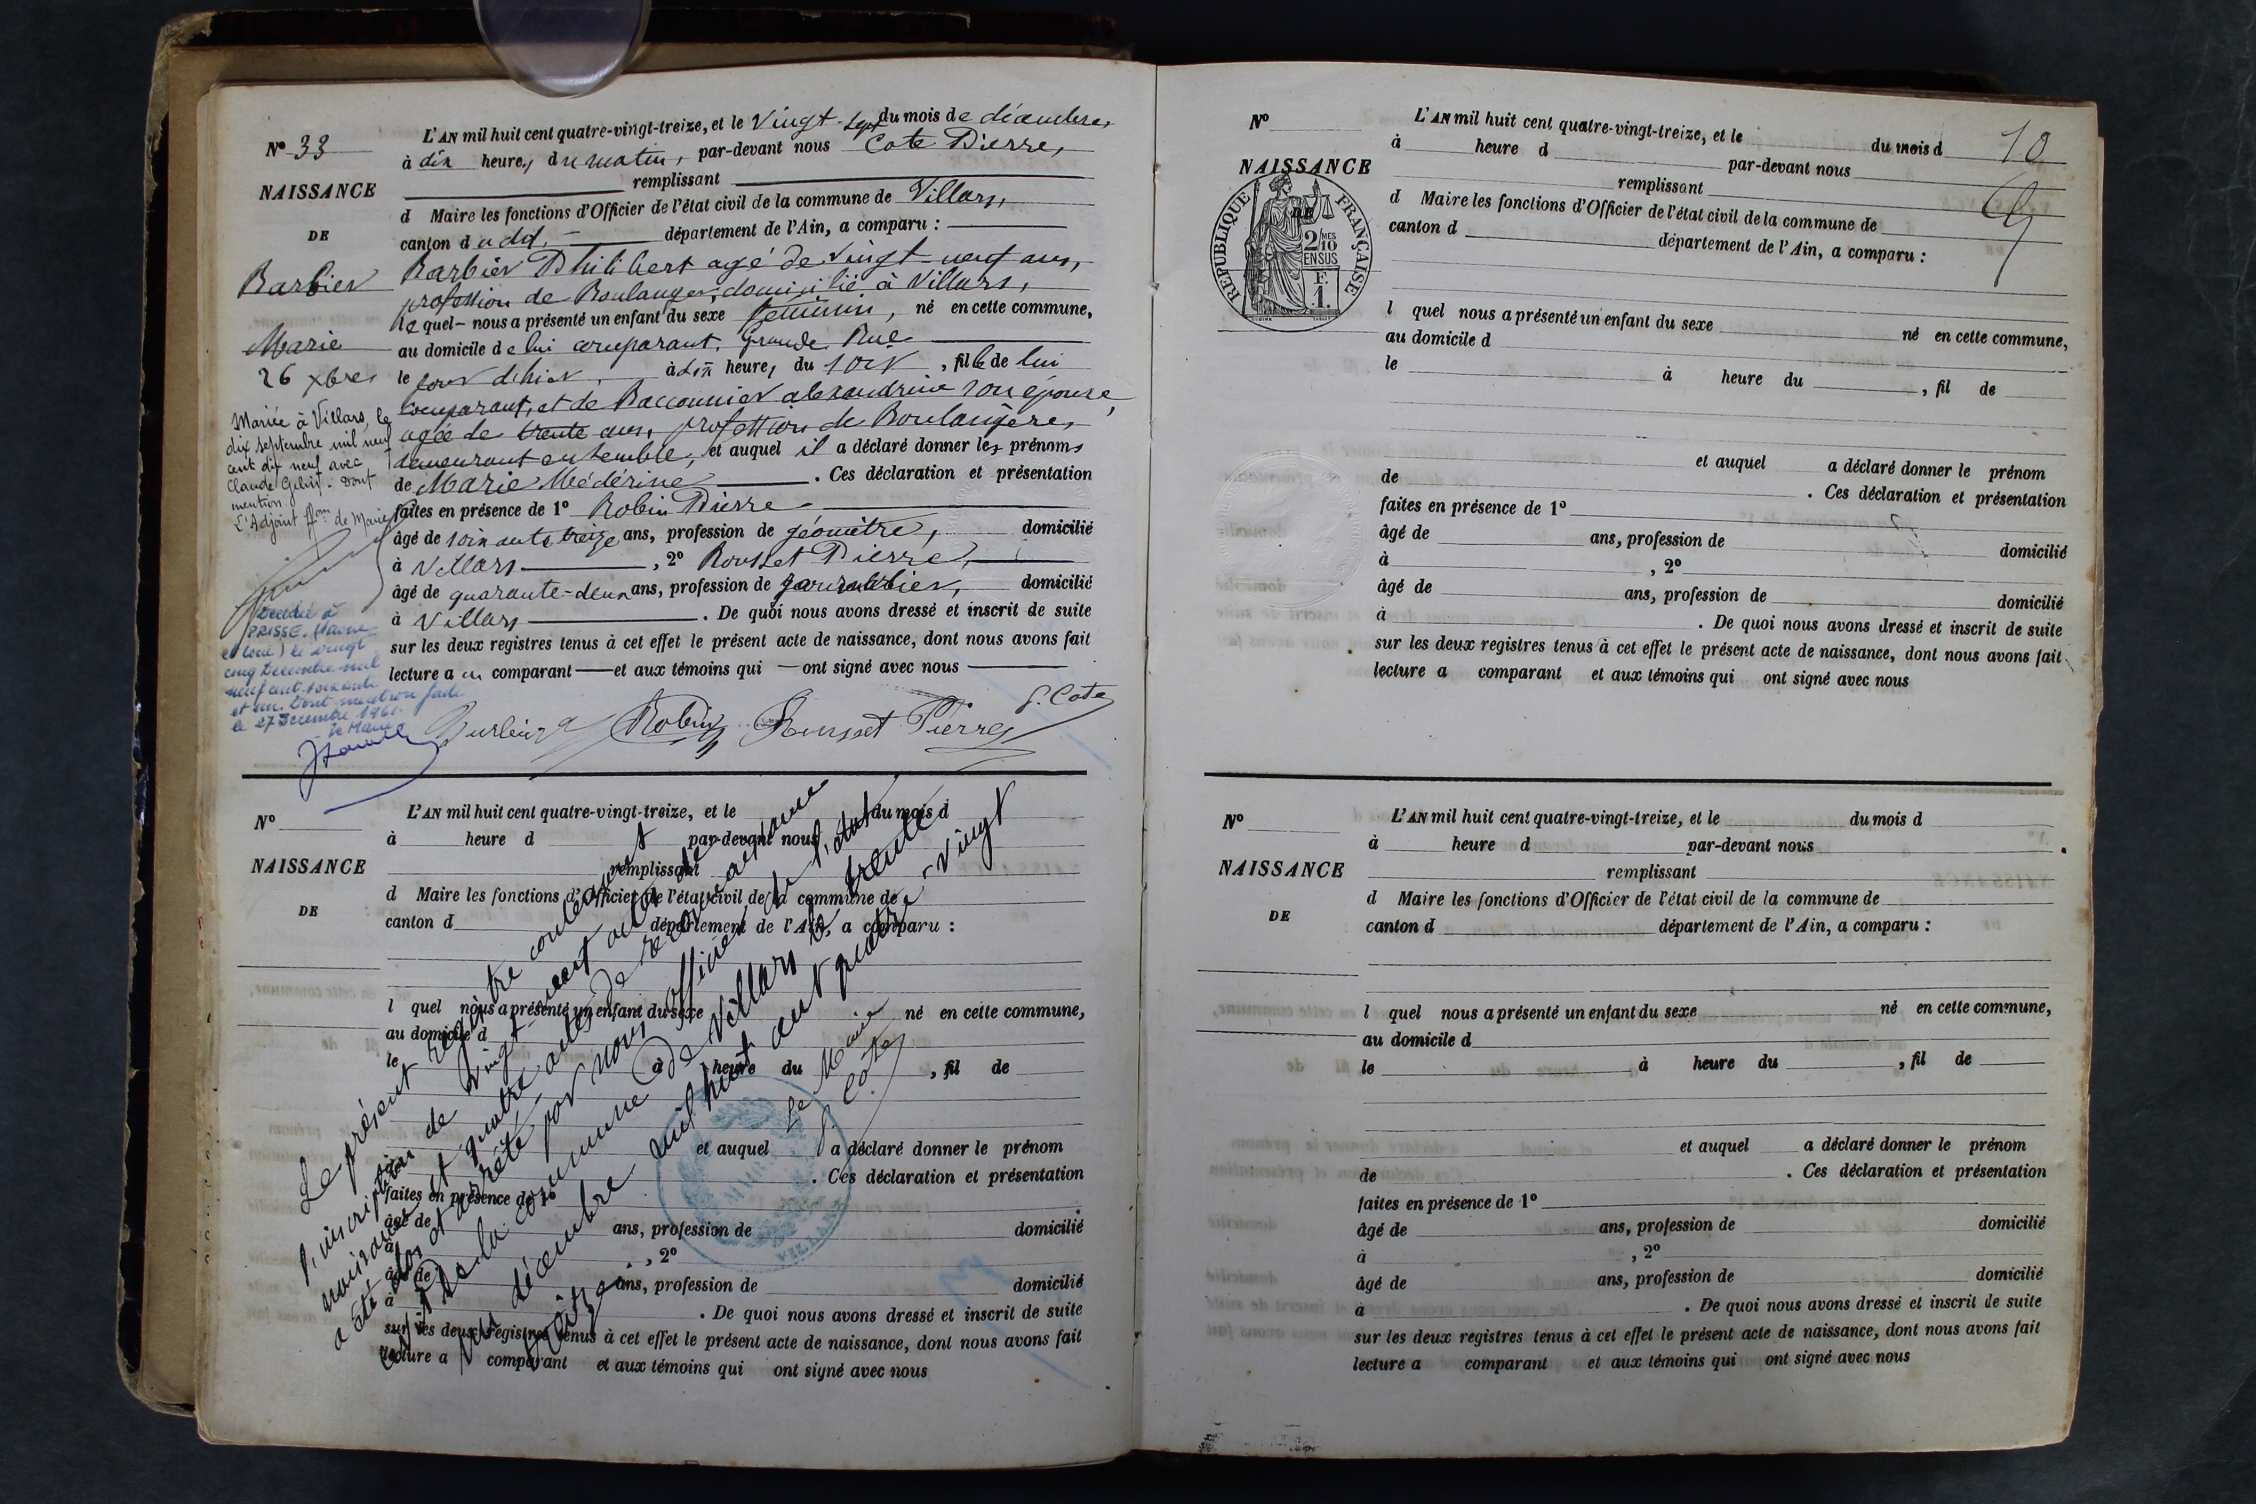 N° 33
NAISSANCE
DE
Barbier
Marie
26 Xbre
Mariée à Villars, le
dix septembre mil neuf
cent dix neuf avec
Claude
Dont
mention
L'Adjoint ffons de Maire
Décédée à
PRISSÉ. (Saône
et Loire) le vingt
cinq Décembre mil
neuf cent soixante
et un. Dont mention faite
le 27 Décembre 1961.
le Maire
L'AN mil huit cent quatre-vingt-treize, et le Vingt-sept du mois de décembre,
à dix heures du matin, par-devant nous Cote Pierre,
remplissant
d Maire les fonctions d'Officier de l'état civil de la commune de Villars,
canton d udit, département de l'Ain, a comparu :
Barbier Philibert agé de vingt-neuf ans,
profession de Boulanger, domicilié à Villars,
lequel nous a présenté un enfant du sexe féminin, né en cette commune,
au domicile de lui comparant, Grande Rue
le jour d'hier à dix heures du soir, fille de lui
comparant, et de Raccounier alexandrine son épouse,
agée de trente ans, profession de Boulangère,
demeurant ensemble, et auquel il a déclaré donner les prénoms
de Marie Médérine . Ces déclaration et présentation
faites en présence de 1° Robin Pierre
âgé de soixante treize ans, profession de géomètre, domicilié
à Villars , 2° Rousset Pierre,
âgé de quarante-deux ans, profession de domicilié
à Villars . De quoi nous avons dressé et inscrit de suite
sur les deux registres tenus à cet effet le présent acte de naissance, dont nous avons fait
lecture au comparant et aux témoins qui ont signé avec nous
Robin Rousset Pierre P. Cote
N°
NAISSANCE
DE
L'AN mil huit cent quatre-vingt-treize, et le du mois d
à heure d par-devant nous
remplissant
d Maire les fonctions d'Officier de l'état civil de la commune de
canton d département de l'Ain, a comparu :
l quel nous a présenté un enfant du sexe né en cette commune,
au domicile d
le à heure du , fil de
et auquel a déclaré donner le prénom
de . Ces déclaration et présentation
faites en présence de 1°
âgé de ans, profession de domicilié
à , 2°
âgé de ans, profession de domicilié
à . De quoi nous avons dressé et inscrit de suite
sur les deux registres tenus à cet effet le présent acte de naissance, dont nous avons fait
lecture a comparant et aux témoins qui ont signé avec nous
Le présent registre contenant
l'inscription de vingt-neuf actes de
naissances et quatre actes de reconnaissance
a été clos et arrêté par nous officier de l'état
civil de la commune de Villars le trente
un décembre mil huit cent quatre-vingt
treize.
Le Maire
P. Cote
N°
NAISSANCE
DE
RÉPUBLIQUE FRANÇAISE
2/10MES
EN SUS
F.
1.
10
L'AN mil huit cent quatre-vingt-treize, et le du mois d
à heure d par-devant nous
remplissant
d Maire les fonctions d'Officier de l'état civil de la commune de
canton d département de l'Ain, a comparu :
l quel nous a présenté un enfant du sexe né en cette commune,
au domicile d
le à heure du , fil de
et auquel a déclaré donner le prénom
de . Ces déclaration et présentation
faites en présence de 1°
âgé de ans, profession de domicilié
à , 2°
âgé de ans, profession de domicilié
à . De quoi nous avons dressé et inscrit de suite
sur les deux registres tenus à cet effet le présent acte de naissance, dont nous avons fait
lecture a comparant et aux témoins qui ont signé avec nous
N°
NAISSANCE
DE
L'AN mil huit cent quatre-vingt-treize, et le du mois d
à heure d par-devant nous
remplissant
d Maire les fonctions d'Officier de l'état civil de la commune de
canton d département de l'Ain, a comparu :
l quel nous a présenté un enfant du sexe né en cette commune,
au domicile d
le à heure du , fil de
et auquel a déclaré donner le prénom
de . Ces déclaration et présentation
faites en présence de 1°
âgé de ans, profession de domicilié
à , 2°
âgé de ans, profession de domicilié
à . De quoi nous avons dressé et inscrit de suite
sur les deux registres tenus à cet effet le présent acte de naissance, dont nous avons fait
lecture a comparant et aux témoins qui ont signé avec nous